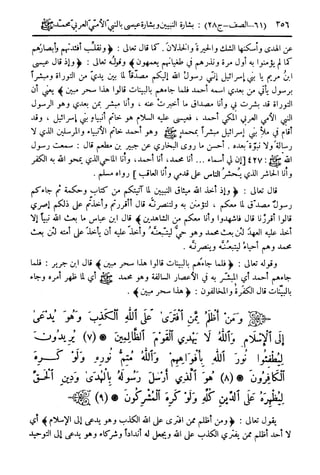 ٣٥٦ (٦١–الصف–ج٢٨) : بشارة النبيين وبشارة عيسى بالنبي الأمي العربي محمد ﷺ
عن الهدى وأسكنها الشك والحيرة والخذلان. كما قال تعالى : ﴿ونقلب أفئدتهم وأبصارهم
كما لم يؤمنوا به أول مرة ونذرهم في طغيانهم يعمهون﴾ وقوله تعالى : ﴿وإذ قال عيسى
ابن مريم يا بني إسرائيل إني رسول الله إليكم مصدقاً لما بين يدي من التوراة ومبشراً
برسول يأتي من بعدي اسمه أحمد فلما جاءهم بالبينات قالوا هذا سحر مبين﴾ يعني أن
التوراة قد بشرت بي وأنا مصداق ما أخبرت عنه ، وأنا مبشر بمن بعدي وهو الرسول
النبي الأمي العربي المكي أحمد ، فعيسى عليه السلام هو خاتم أنبياء بني إسرائيل ، وقد
أقام في ملأ بني إسرائيل مبشراً بمحمد وهو أحمد خاتم الأنبياء والمرسلين الذي لا
رسالة ولا نبوة بعده. أحسن ما روى البخاري عن جبير بن مطعم قال : سمعت رسول
الله : ٤٢٧ [إن لي أسماء ... أنا محمد، أنا أحمد، وأنا الماحي الذي يمحو الله به الكفر
وأنا الحاشر الذي يحشر الناس على قدمي وأنا العاقب] رواه مسلم .
قال تعالى : ﴿وإذ أخذ الله ميثاق النبيين لما آتيتكم من كتاب وحكمة ثم جاءكم
رسول مصدق لما معكم ، لتؤمنن به ولتنصرنه قال أأقررتم وأخذتم على ذلكم إصري
قالوا أقررنا قال فاشهدوا وأنا معكم من الشاهدين﴾ قال ابن عباس ما بعث الله نبياً إلا
أخذ عليه العهد لئن بعث محمد وهو حي ليتبعنه وأخذ عليه أن يأخذ على أمته لئن بعث
محمد وهم أحياء ليتبعنه وينصرنه .
وقوله تعالى : ﴿فلما جاءهم بالبينات قالوا هذا سحر مبين﴾ . قال ابن جرير : فلما
جاءهم أحمد أي المبشر به في الأعصار السالفة وهو محمد أي لما ظهر أمره وجاء
بالبينات قال الكفرة والمخالفون : ﴿هذا سحر مبين﴾ .
وَمَنْ أَظْلَمُ مِمَّنِ افْتَرَىٰ عَلَى اللَّهِ الْكَذِبَ وَهُوَ يُدْعَىٰ
إِلَى الْإِسْلَامِ وَاللَّهُ لَا يَهْدِي الْقَوْمَ الظَّالِمِينَ ﴿٧﴾ يُرِيدُونَ
لِيُطْفِئُوا نُورَ اللَّهِ بِأَفْوَاهِهِمْ وَاللَّهُ مُتِمُّ نُورِهِ وَلَوْ كَرِهَ
الْكَافِرُونَ ﴿٨﴾ هُوَ الَّذِي أَرْسَلَ رَسُولَهُ بِالْهُدَىٰ وَدِينِ الْحَقِّ
لِيُظْهِرَهُ عَلَى الدِّينِ كُلِّهِ وَلَوْ كَرِهَ الْمُشْرِكُونَ ﴿٩﴾
يقول تعالى : ﴿ومن أظلم ممن افترى على الله الكذب وهو يدعى إلى الإسلام﴾ أي
لا أحد أظلم ممن يفتري الكذب على الله ويجعل له أنداداً وشركاء وهو يدعى إلى التوحيد